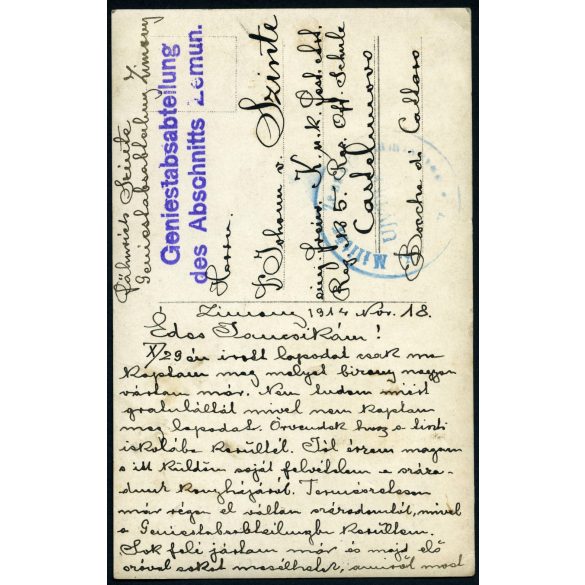 Fähnrich Szinte
Geniestabsabteilung Zimony
Geniestabsabteilung
des Abschnitts Zemun.
Herrn
Johann v. Szinte
K.u.k. Fest. Art.
Reg. No 5. Res. Off. Schule
Castelnuovo
Bocche di Cattaro
Zimony 1914 Nov. 18.
Édes Jancsikám!
X/29 én írott lapodat csak ma
kaptam meg melyet bizony nagyon
vártam már. Nem tudom miért
gratuláltál mivel nem kaptam
meg lapodat. Örvendek hogy a tiszti
iskolába kerültél. Jól érzem magam
s itt küldöm saját felvételem a száza-
dunk konyhájáról. Természetesen
már régen el váltam századomtól, mivel
a Geniestabsabteilungba kerültem.
Sok felé jártam már és majd élő
szóval sokat mesélhetek, amiről most